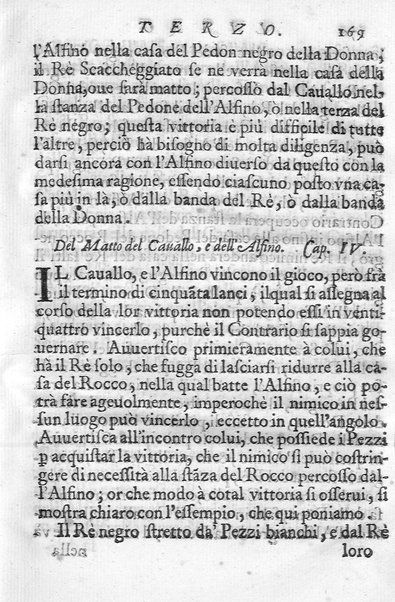 TERZO. 169
l'Alfino nella casa del Pedon negro della Donna;
il Rè Scaccheggiato se ne verra nella casa della
Donna, oue sarà matto; percosso dal Cauallo nel-
la stanza del Pedone dell'Alfino, ò nella terza del
Rè negro; questa vittoria è più difficile di tutte
l'altre, perciò hà bisogno di molta diligenza, può
darsi ancora con l'Alfino diuerso da questo con la
medesima ragione, essendo ciascuno posto vna ca-
sa più in là, ò dalla banda del Rè, ò dalla banda
della Donna.
Del Matto del Cauallo, e dell'Alfino. Cap. IV.
IL Cauallo, e l'Alfino vincono il gioco, però frà
il termino di cinquãta lanci, ilqual si assegna al
corso della lor vittoria non potendo essi in venti-
quattro vincerlo, purchè il Contrario si sappia go-
uernare. Auuertisco primieramente à colui, che
hà il Rè solo, che fugga di lasciarsi ridurre alla ca-
sa del Rocco, nella qual batte l'Alfino, e ciò po-
trà fare ageuolmente, imperochè il nimico in nes-
sun luogo può vincerlo, i eccetto in quell'angolo.
Auuertisca all'incontro colui, che possiede i Pezzi
p acquistar la vittoria, che il nimico si può costrin-
gere di necessità alla stãza del Rocco percosso dal-
l'Alfino; or che modo à cotal vittoria si osserui, si
mostra chiaro con l'essempio, che qui poniamo.
Il Rè negro stretto da' Pezzi bianchi, e dal Rè
loro